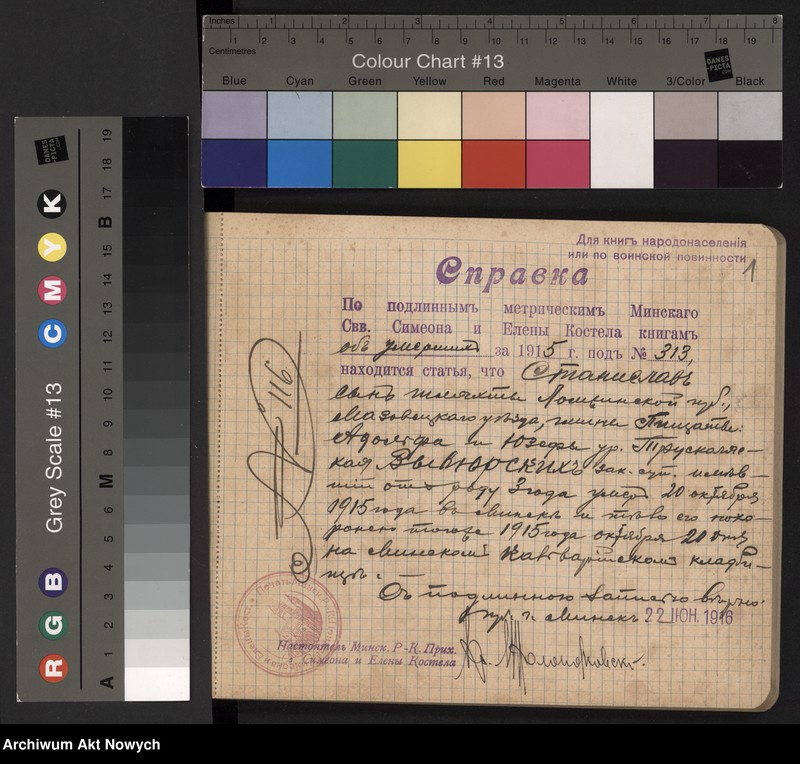 Inches 1 2 3 4 5 6 7 8
Centimetres 1 2 3 4 5 6 7 8 9 10 11 12 13 14 15 16 17 18 19
Colour Chart #13
DANES
-PICTA
.COM
Blue Cyan Green Yellow Red Magenta White 3/Color Black
Grey Scale #13
R G B C M Y K
A 1 2 3 4 5 6 M 8 9 10 11 12 13 14 15 B 17 18 19
DANES
-PICTA
.COM
Для книгъ народонаселенія
или по воинской повинности
1
Справка
По подлиннымъ метрическимъ Минскаго
Свв. Симеона и Елены Костела книгамъ
объ умершихъ за 1915 г. подъ № 313,
находится статья, что Станиславъ
сынъ шляхты Ломжинской губ.,
Мазовецкаго уѣзда, гмины
Адольфа и Юзефы ур. Трускаляс-
кая ВЫВЮРСКИХЪ зак. суп. имѣв-
шій отъ роду 3 года умеръ 20 октября
1915 года въ Минскѣ и тѣло его похо-
ронено тогоже 1915 года октября 21 дня
на Минскомъ Кальварійскомъ кладби-
щѣ.
Съ подлинною записью вѣрно.
г. Минскъ 22 ІЮН. 1916
№ 116
Настоятель Минск. Р.-К. Прих.
Симеона и Елены Костела
Archiwum Akt Nowych